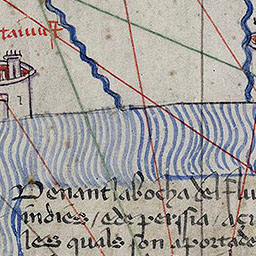 Denant la bocha del flu
indies / e de perssia / aqu
les quals son aportade